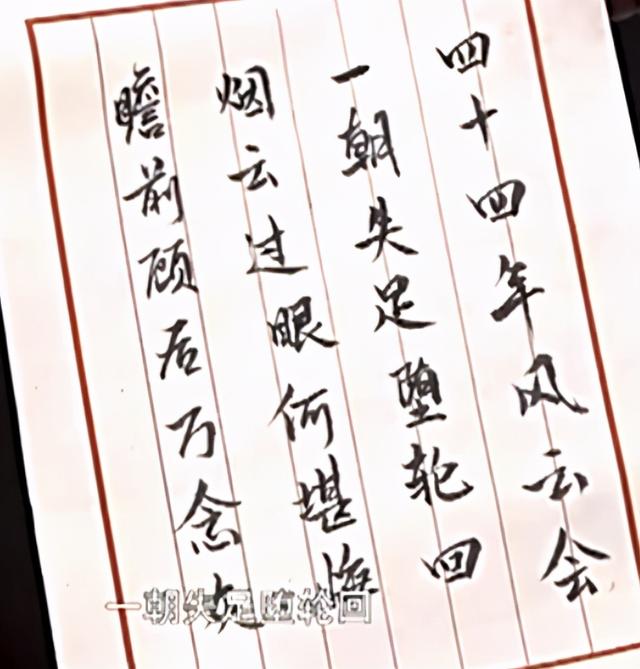 四十四年风云会
一朝失足堕轮回
烟云过眼何堪悔
瞻前顾后万念
一朝失足堕轮回